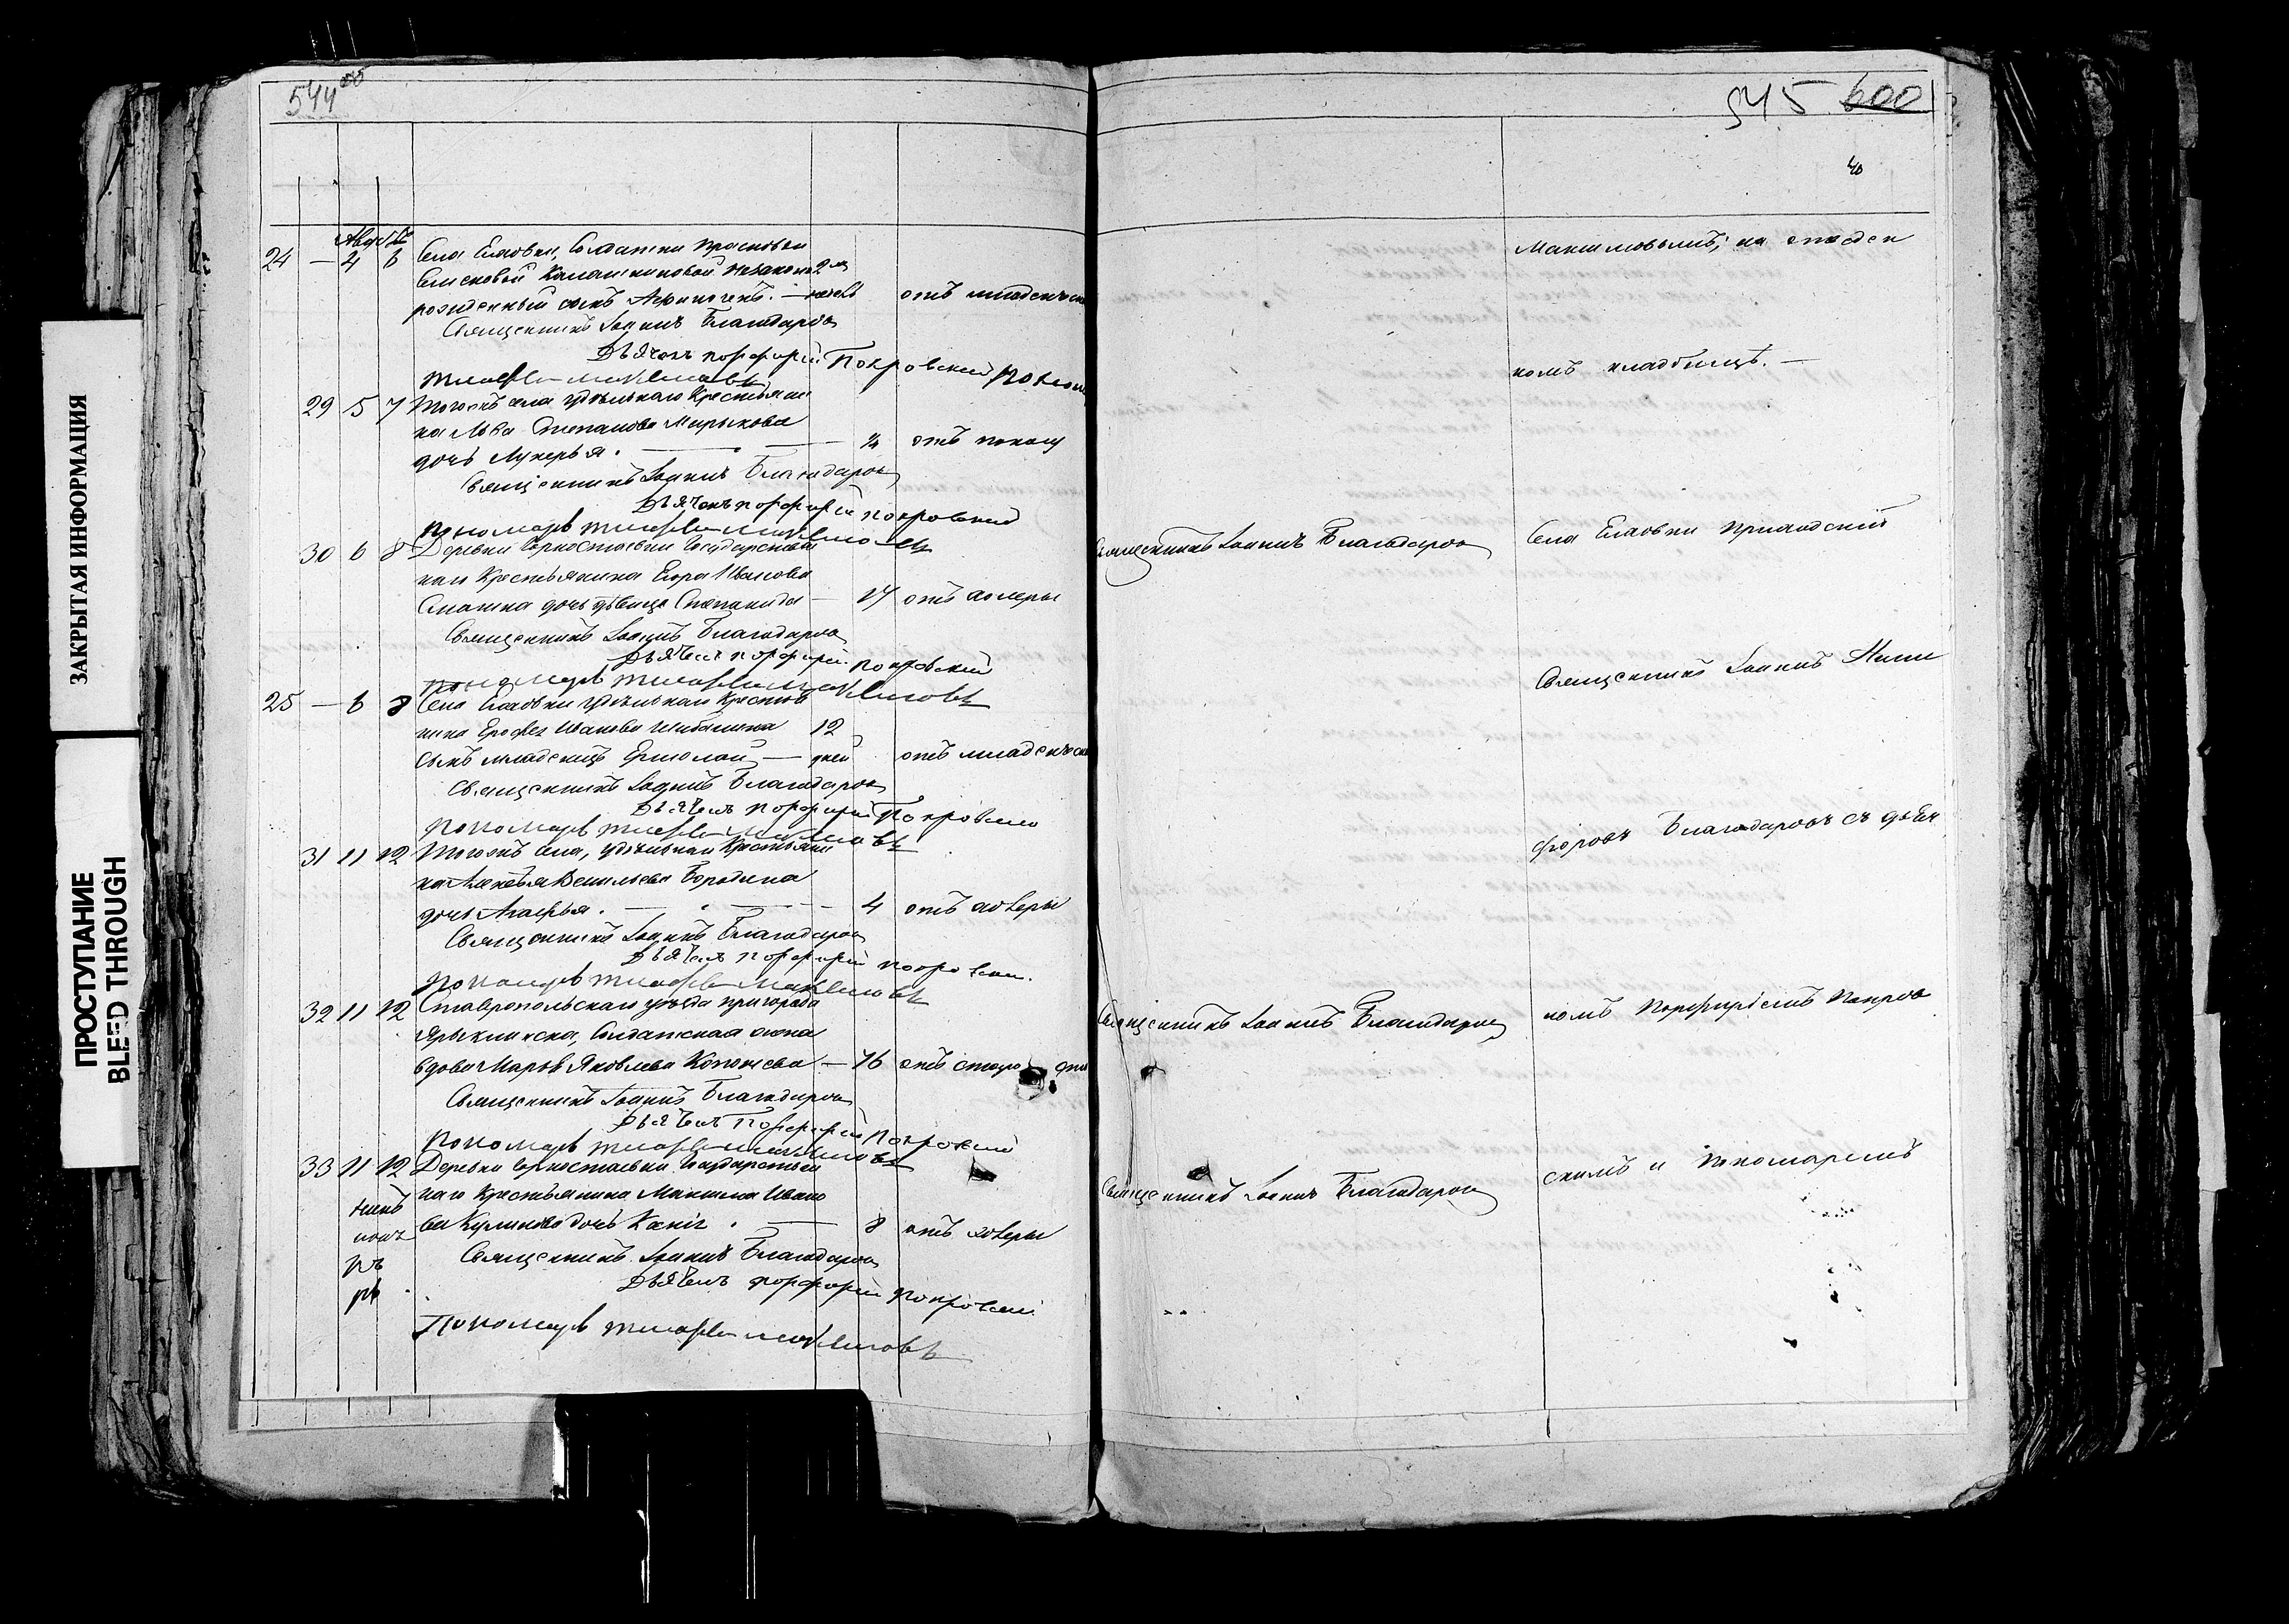 544
545 600
40
Августъ
24 — 4 6 Села Елховки, Солдатки Прасковьи
Калашниковой незаконно 2 мѣ
рожденный сынъ Афиногенъ. — сяцевъ отъ младенческ
Священникъ Іоаннъ Благодаровъ
Дьячекъ Порфирій Покровскій Поном
Тимофей Максимовъ
29 5 7 Тогожъ села удѣльнаго Крестьяни
на Льва Степанова Мирykова
дочь Лукерья. — отъ поносу
Священникъ Іоаннъ Благодаровъ
Дьячекъ Порфирій Покровскій
Пономарь Тимофей Максимовъ
30 6 8 Деревни Горностаевки Государствен
наго Крестьянина Егора Иванова
дочь дѣвица Степанида — 17 отъ холеры
Священникъ Іоаннъ Благодаровъ
Дьячекъ Порфирій Покровскій
Пономарь Тимофей Максимовъ
25 — 6 8 Села Елховки удѣльнаго Крестья
нина Ерофея Иванова Шибашина 12
сынъ младенецъ Ермолай — дней отъ младенческ
Священникъ Іоаннъ Благодаровъ
Дьячекъ Порфирій Покровскій
Пономарь Тимофей Максимовъ
31 11 12 Тогожъ села, удѣльнаго Крестьяни
на Алексѣя Васильева Бородина
дочь Агафья. — 4 отъ холеры
Священникъ Іоаннъ Благодаровъ
Дьячекъ Порфирій Покровскій.
Пономарь Тимофей Максимовъ
32 11 12 Ставропольскаго уѣзда пригорода
Ерыклинска, Солдатская жена
вдова Марѳа Яковлева — 76 отъ старо сти
Священникъ Іоаннъ Благодаровъ
Дьячекъ Порфирій Покровскій
Пономарь Тимофей Максимовъ
33 11 12 Деревни Горностаевки Государствен
наго Крестьянина Максима Ивано
ва Куликова дочь . — 8 отъ холеры
Священникъ Іоаннъ Благодаровъ
Дьячекъ Порфирій Покровскій
Пономарь Тимофей Максимовъ
Максимовымъ, на отведен
номъ кладбищѣ. —
Священникъ Іоаннъ Благодаровъ
Села Елховки приходскій
Священникъ Іоаннъ Ники
форовъ Благодаровъ съ дьяч
Священникъ Іоаннъ Благодаровъ
комъ Порфиріемъ Покров
Священникъ Іоаннъ Благодаровъ
скимъ и Пономаремъ
ЗАКРЫТАЯ ИНФОРМАЦИЯ
ПРОСТУПАНИЕ
BLEED THROUGH